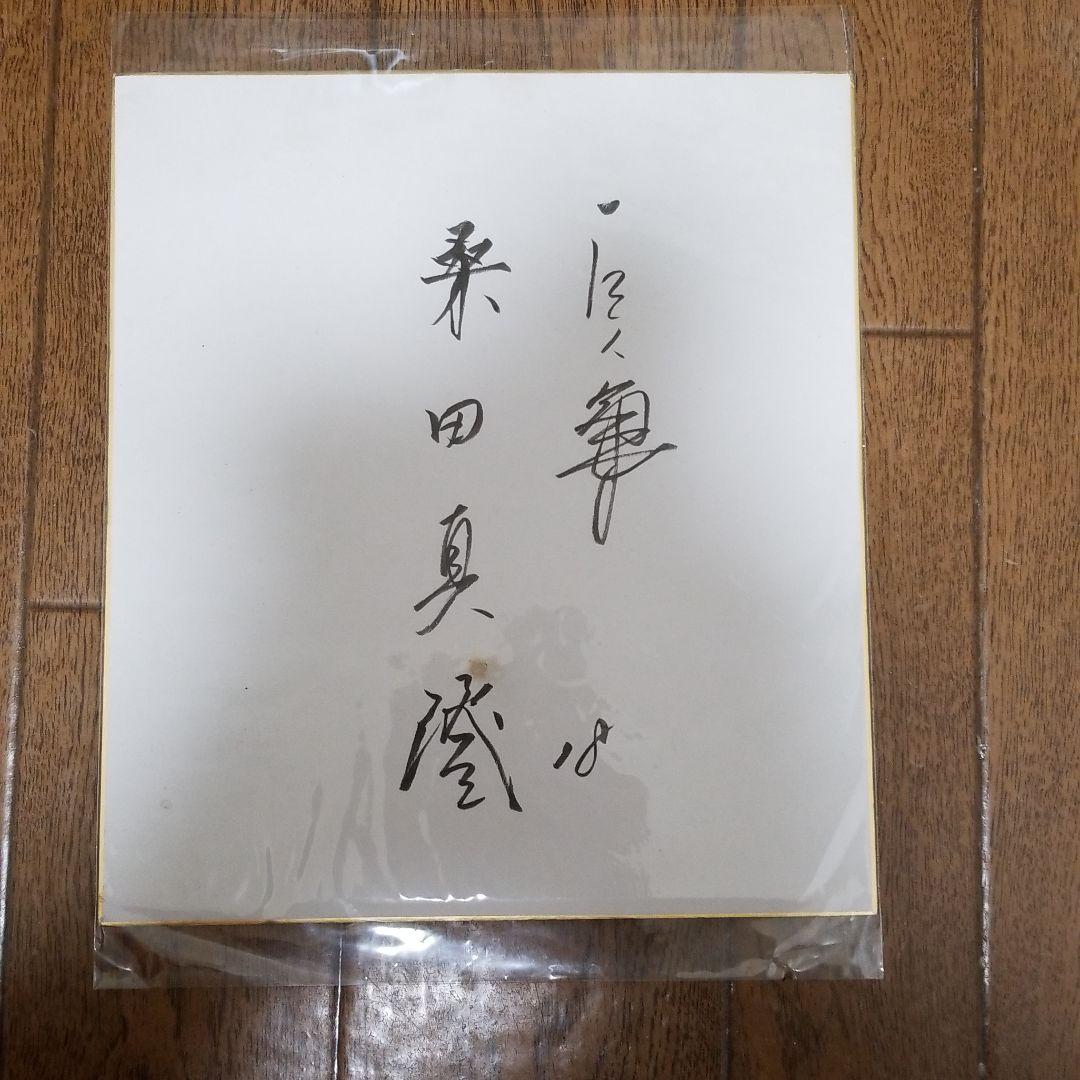 巨人軍 18
桑田真澄